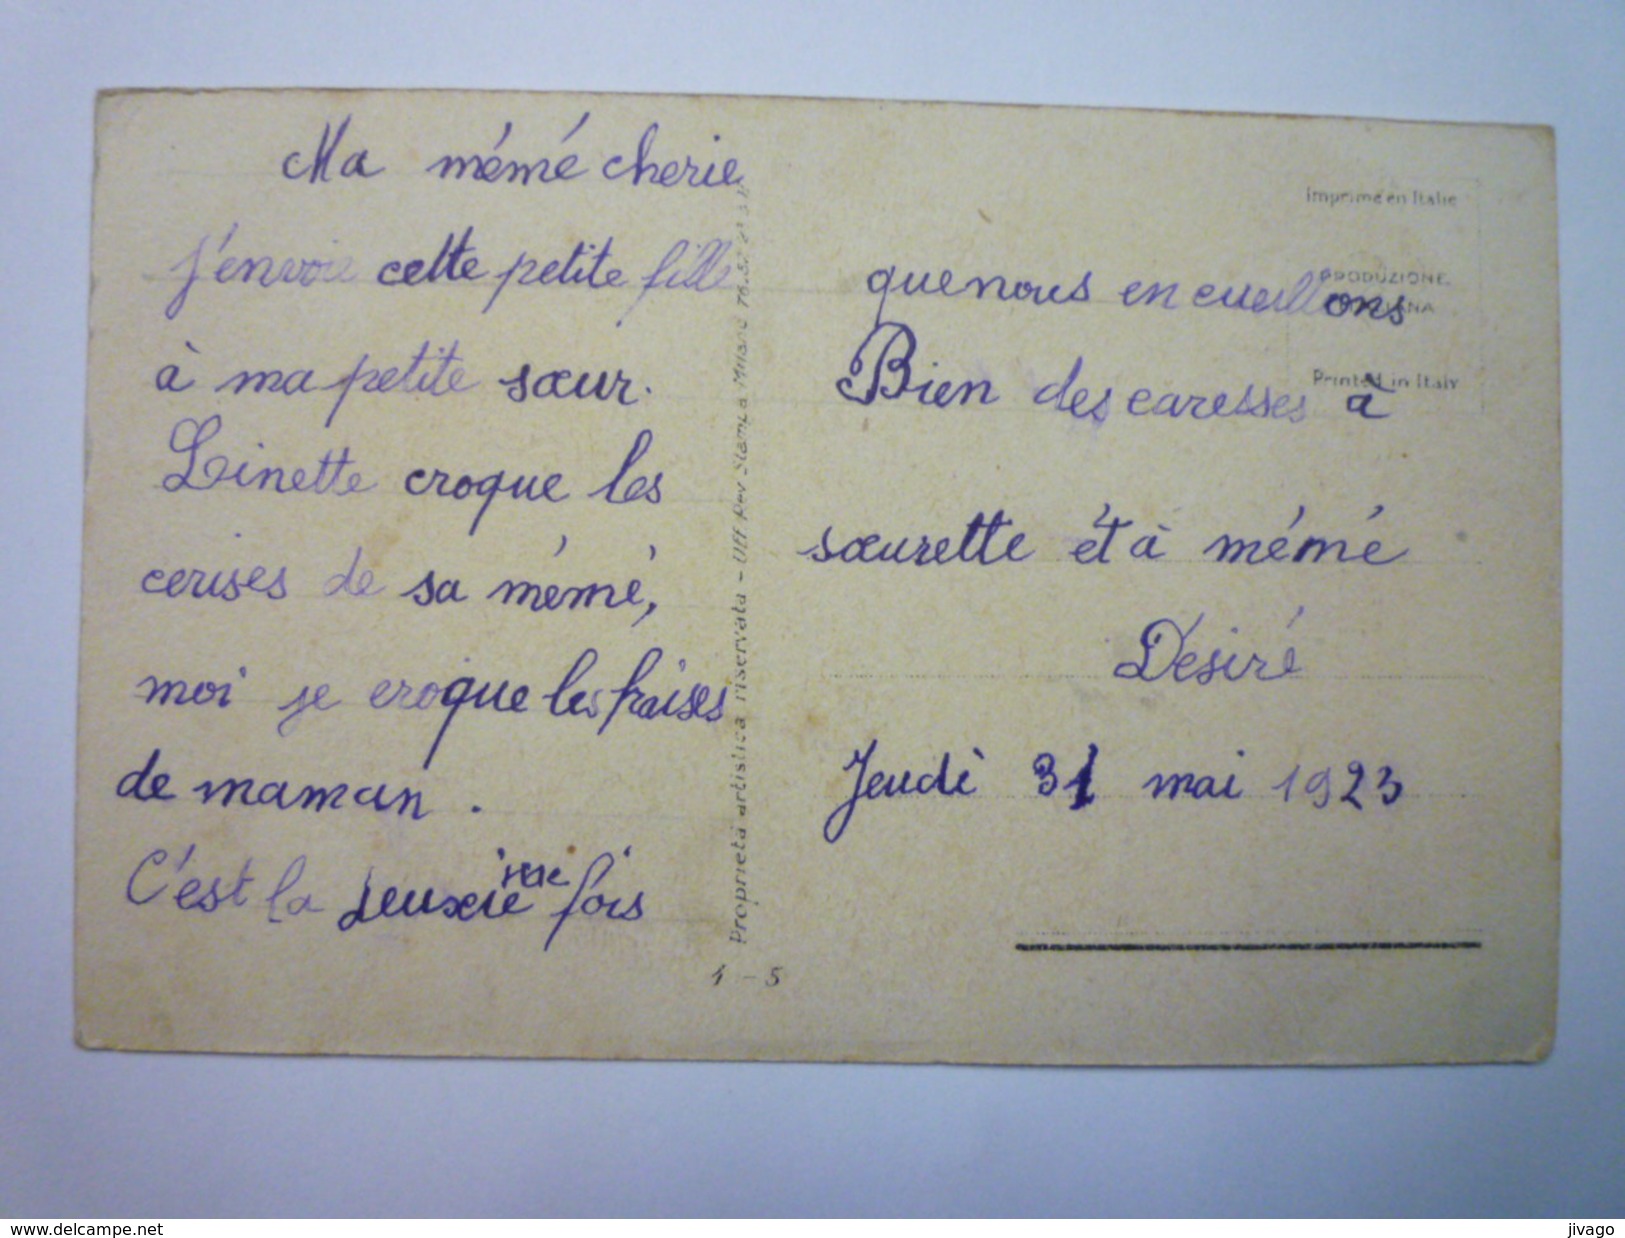 Ma mémé cherie
j'envoie cette petite fille
à ma petite sœur.
Linette croque les
cerises de sa mémé,
moi je croque les fraises
de maman.
C'est la deuxième fois
que nous en cueillons
Bien des caresses à
sœurette ét à mémé
Désiré
Jeudi 31 mai 1923
Imprimé en Italie
PRODUZIONE
Printed in Italy
Proprietà artistica riservata - Uff Rev Stampa Milano
1 - 5
www.delcampe.net
jivago